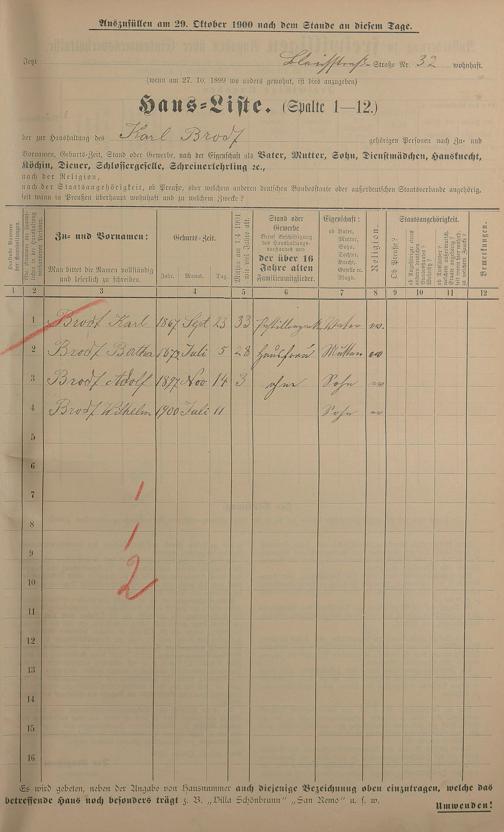 Auszufüllen am 29. Oktober 1900 nach dem Stande an diesem Tage.
Jetzt Straße Nr. 32 wohnhaft.
(wenn am 27. 10. 1899 wo anders gewohnt, ist dies anzugeben)
Haus-Liste. (Spalte 1—12.)
der zur Haushaltung des Karl Brodt gehörigen Personen nach Zu- und
Vornamen, Geburts-Zeit, Stand oder Gewerbe, nach der Eigenschaft als Vater, Mutter, Sohn, Dienstmädchen, Hausknecht,
Köchin, Diener, Schlossergeselle, Schreinerlehrling ꝛc.,
nach der Religion,
nach der Staatsangehörigkeit, ob Preuße, oder welchem anderen deutschen Bundesstaate oder außerdeutschen Staatsverbande angehörig,
seit wann in Preußen überhaupt wohnhaft und zu welchem Zwecke?
Zu- und Vornamen:
Man bittet die Namen vollständig und leserlich zu schreiben.
Geburts-Zeit.
Jahr. Monat. Tag.
Stand oder Gewerbe
der über 16 Jahre alten Familienmitglieder.
Eigenschaft:
ob Vater, Mutter, Sohn, Tochter, Knecht, Geselle ꝛc. Magd.
Religion.
Staatsangehörigkeit.
Ob Preuße?
Bemerkungen.
1 2 3 4 5 6 7 8 9 10 11 12
1 Brodt Karl 1867 Sept 23 33 Vater ev.
2 Brodt Bertha 1872 Juli 5 28 Hausfrau Mutter ev
3 Brodt Adolf 1897 Nov 14 3 ohne Sohn ev
4 Brodt Wilhelm 1900 Juli 11 Sohn ev
5
6
7 1
8 1
9
10 2
11
12
13
14
15
16
Es wird gebeten, neben der Angabe von Hausnummer auch diejenige Bezeichnung oben einzutragen, welche das
betreffende Haus noch besonders trägt z. B. „Villa Schönbrunn" „San Remo" u. s. w.
Umwenden!